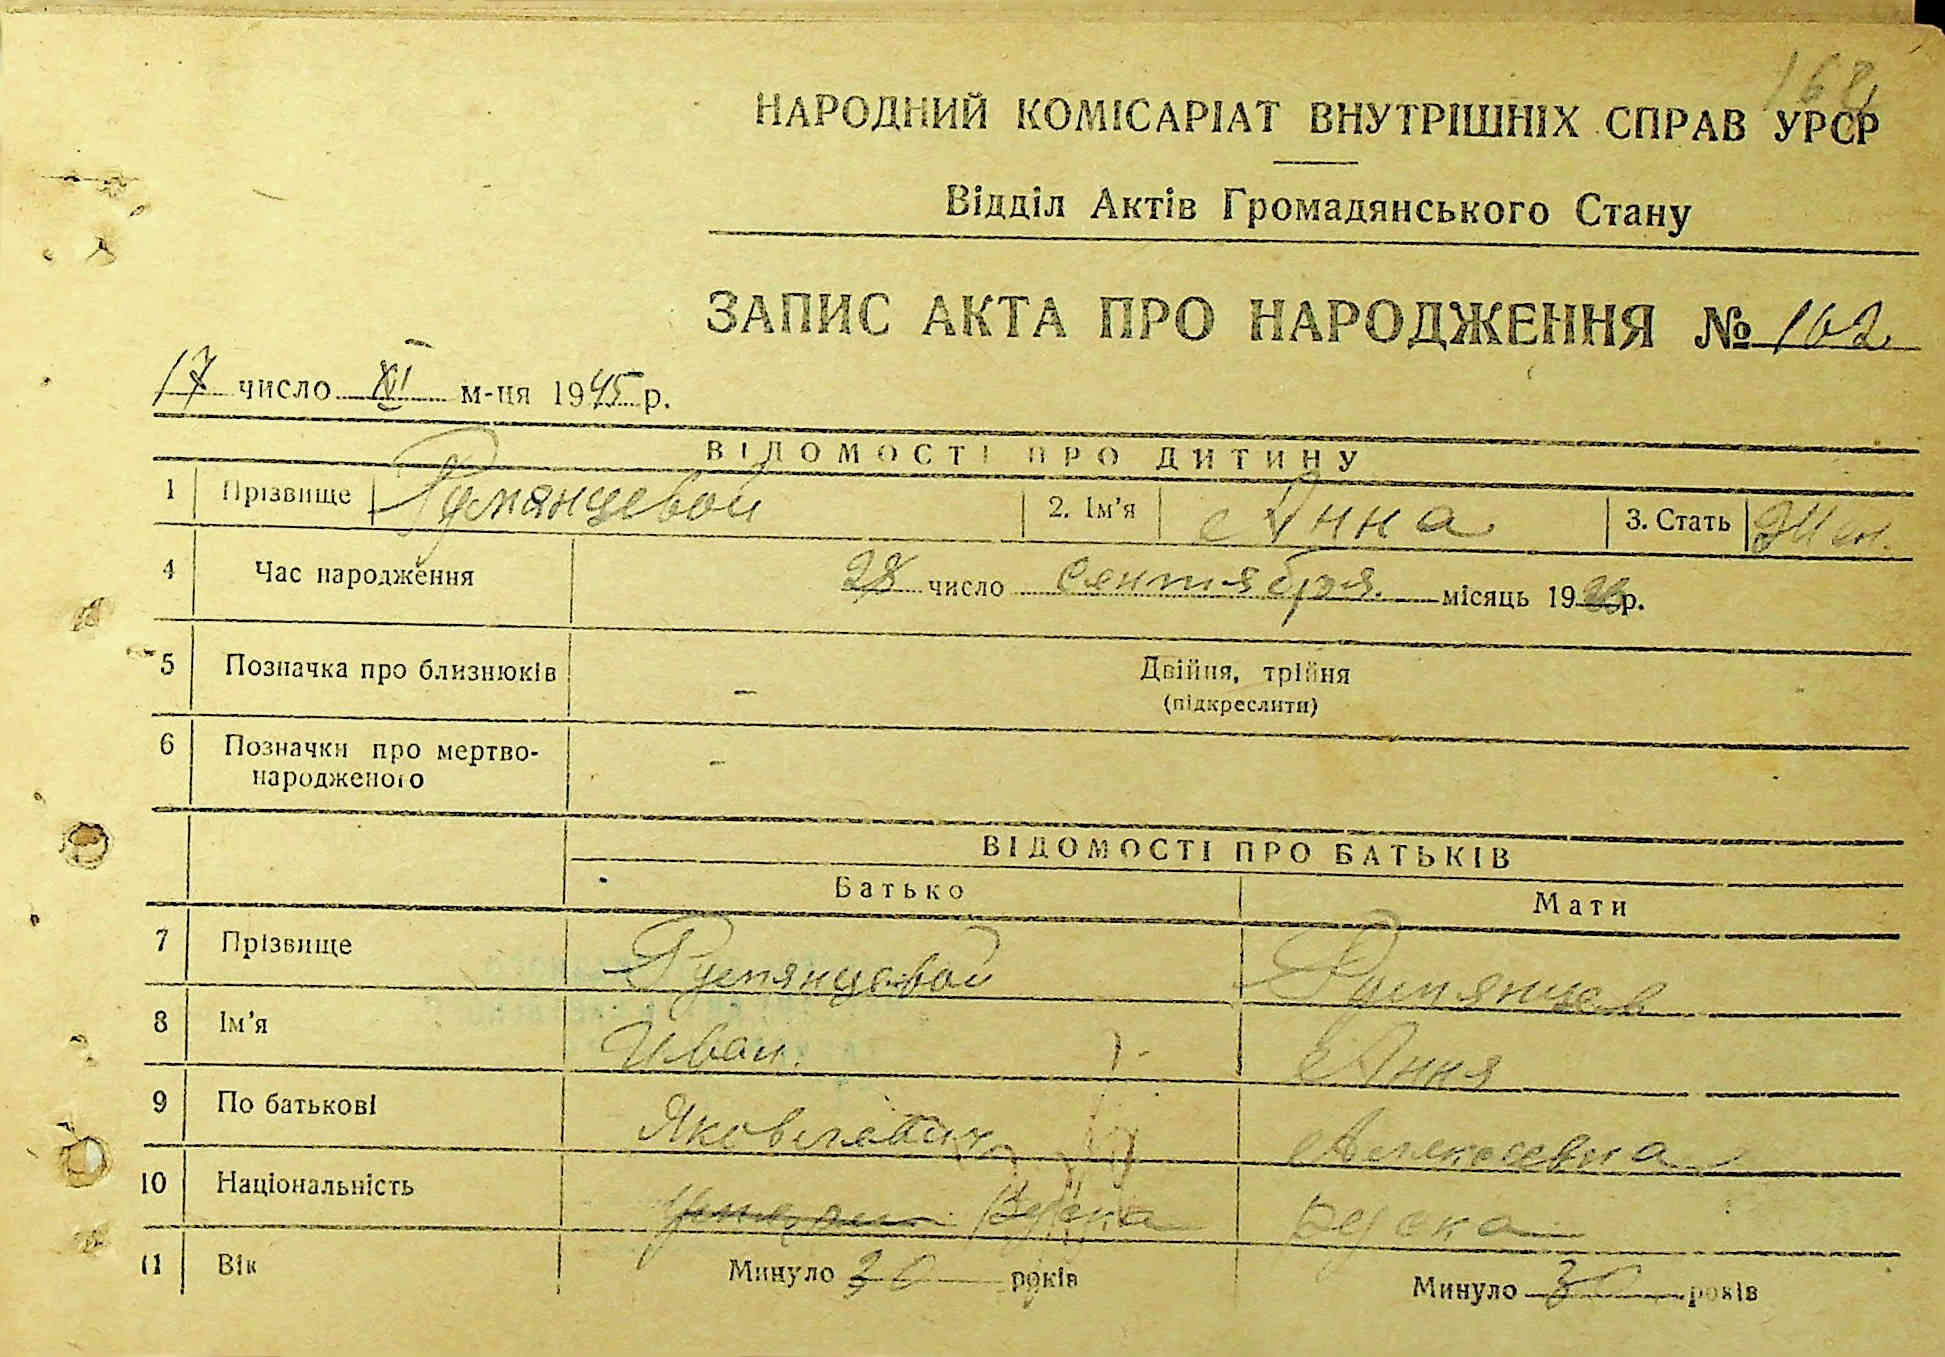 168
НАРОДНИЙ КОМІСАРІАТ ВНУТРІШНІХ СПРАВ УРСР
Відділ Актів Громадянського Стану
ЗАПИС АКТА ПРО НАРОДЖЕННЯ № 162
17 число XI м-ця 1945 р.
ВІДОМОСТІ ПРО ДИТИНУ
1 Прізвище Румянцевой 2. Ім'я Анна 3. Стать Жен.
4 Час народження 28 число Сентября місяць 19 р.
5 Позначка про близнюків - Двійня, трійня
(підкреслити)
6 Позначки про мертво-
народженого -
ВІДОМОСТІ ПРО БАТЬКІВ
Батько Мати
7 Прізвище Румянцевой Румянцев
8 Ім'я Иван. Анна
9 По батькові Яковлевич Алексеевна
10 Національність Руска Руска
11 Вік Минуло 30 років Минуло 30 років